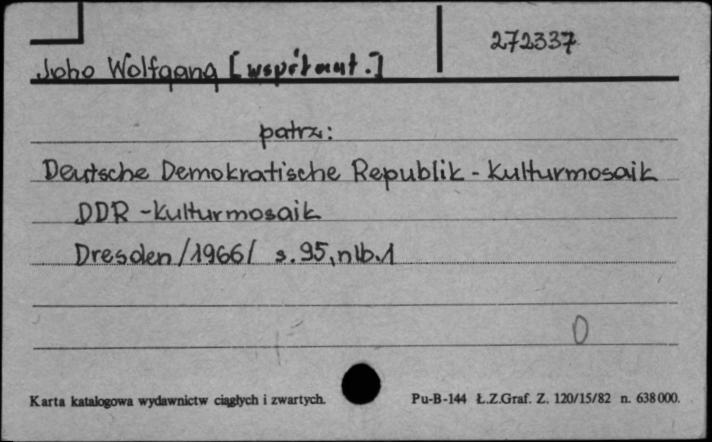 272337
Joho Wolfgang [współaut.]
patrz:
Deutsche Demokratische Republik - Kulturmosaik
DDR - Kulturmosaik
Dresden /1966/ s. 95, nlb. 1
0
Karta katalogowa wydawnictw ciągłych i zwartych. Pu-B-144 Ł.Z.Graf. Z. 120/15/82 n. 638000.